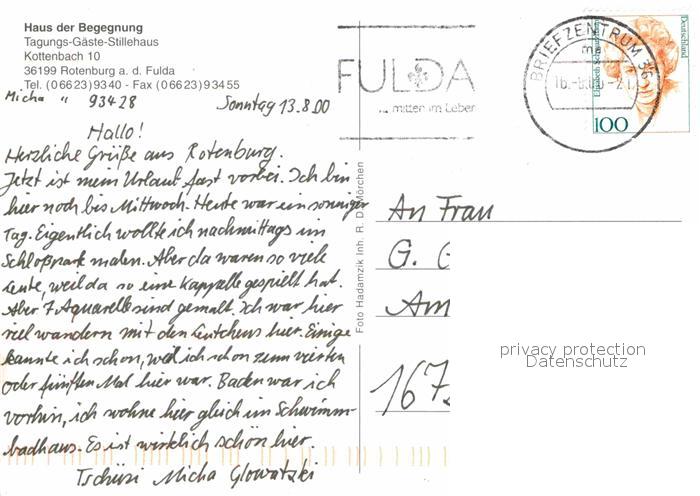 Haus der Begegnung
Tagungs-Gäste-Stillehaus
Kottenbach 10
36199 Rotenburg a. d. Fulda
Tel. (0 66 23) 93 40 - Fax (0 66 23) 9 34 55
Micha " 93428 Sonntag 13.8.00
Hallo!
Herzliche Grüße aus Rotenburg.
Jetzt ist mein Urlaub fast vorbei. Ich bin
hier noch bis Mittwoch. Heute war ein sonniger
Tag. Eigentlich wollte ich nachmittags im
Schloßpark malen. Aber da waren so viele
Leute, weil da so eine Kappelle gespielt hat.
Aber 7 Aquarelle sind gemalt. Ich war hier
viel wandern mit den Leutchens hier. Einige
kannte ich schon, weil ich schon zum vierten
oder fünften Mal hier war. Baden war ich
vorhin, ich wohne hier gleich im Schwimm-
badhaus. Es ist wirklich schön hier.
Tschüsi Micha Glowatzki
Foto Hadamzik Inh. R. D. Mörchen
FULDA
... mitten im Leben
BRIEFZENTRUM 36
ma
Deutschland
100
An Frau
G. G
Am
167
privacy protection
Datenschutz